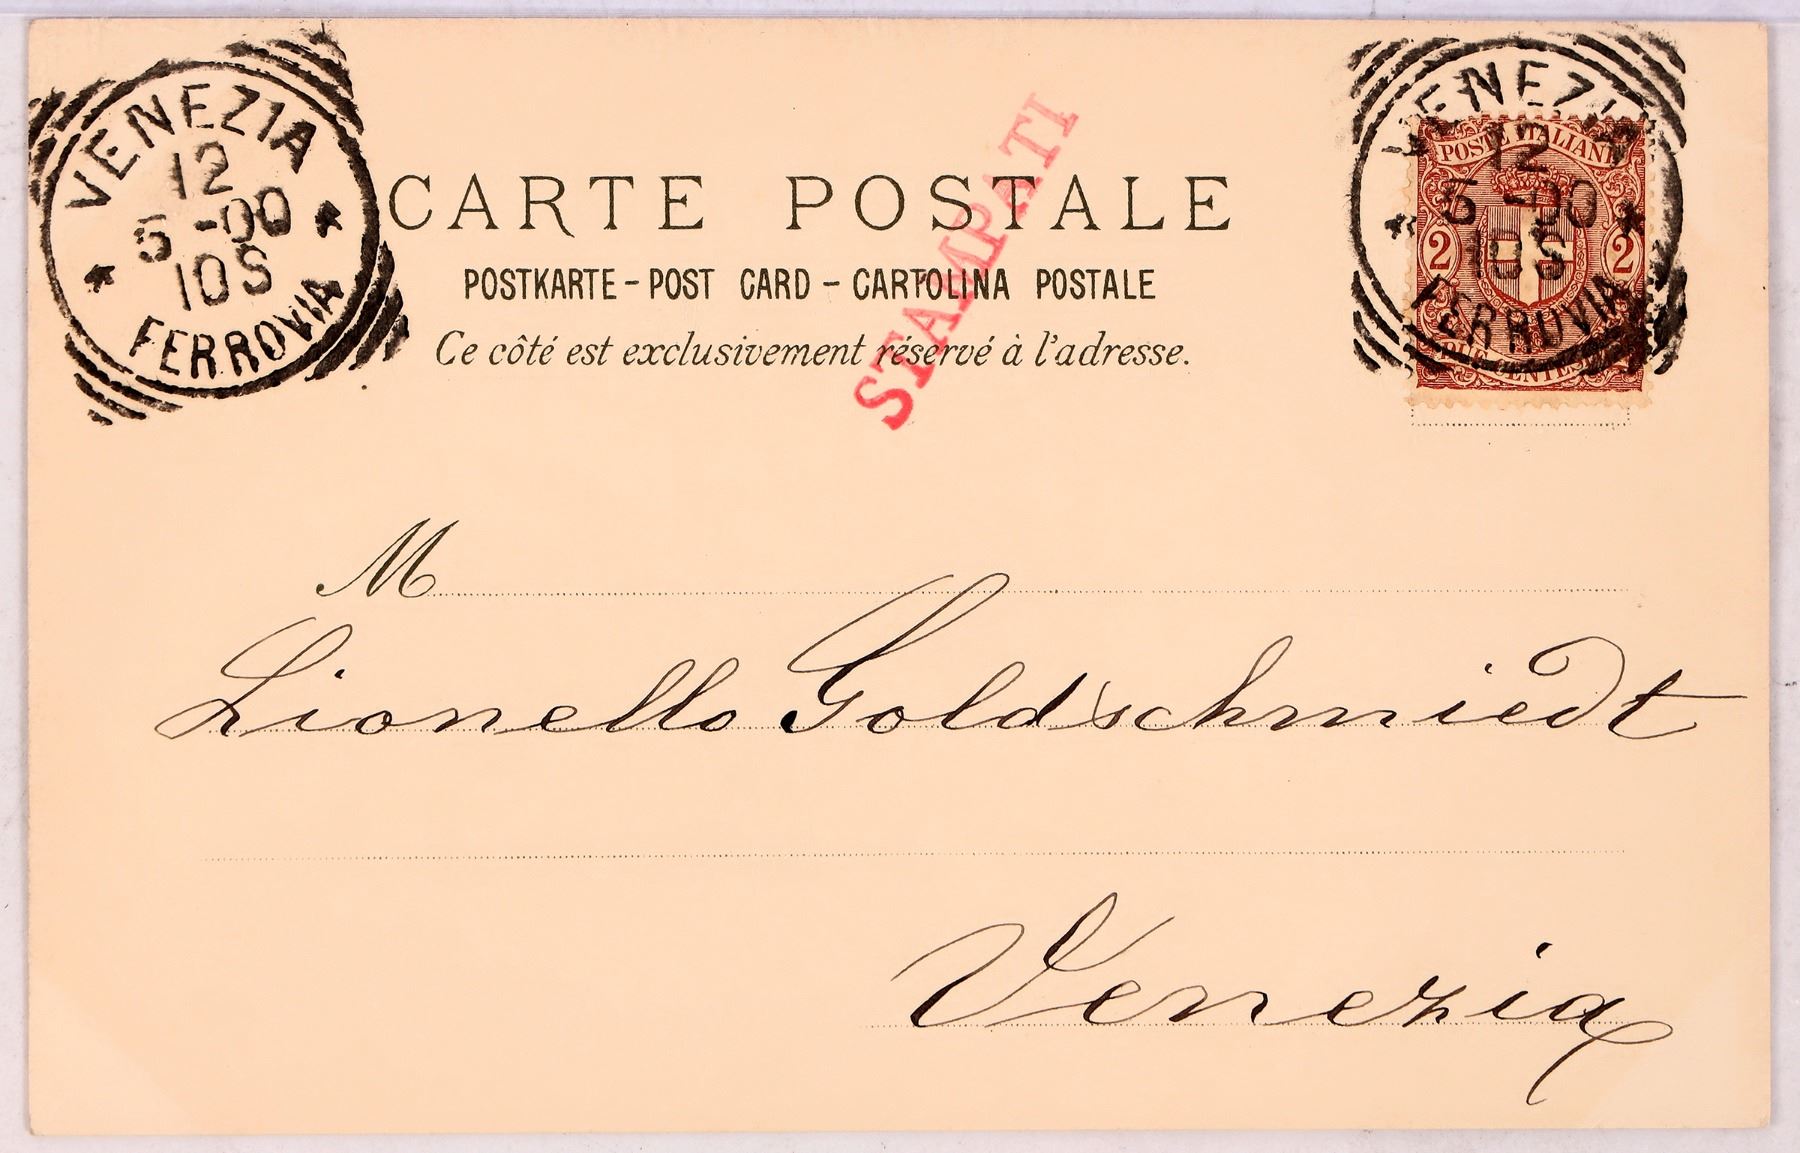 VENEZIA
12
5 -00
10S
* *
FERROVIA
CARTE POSTALE
POSTKARTE - POST CARD - CARTOLINA POSTALE
Ce côté est exclusivement réservé à l'adresse.
STAMPATI
VENEZIA
12
5 -00
10S
* *
FERROVIA
POSTE ITALIANE
2 2
DUE CENTESIMI
M
Lionello Goldschmiedt
Venezia